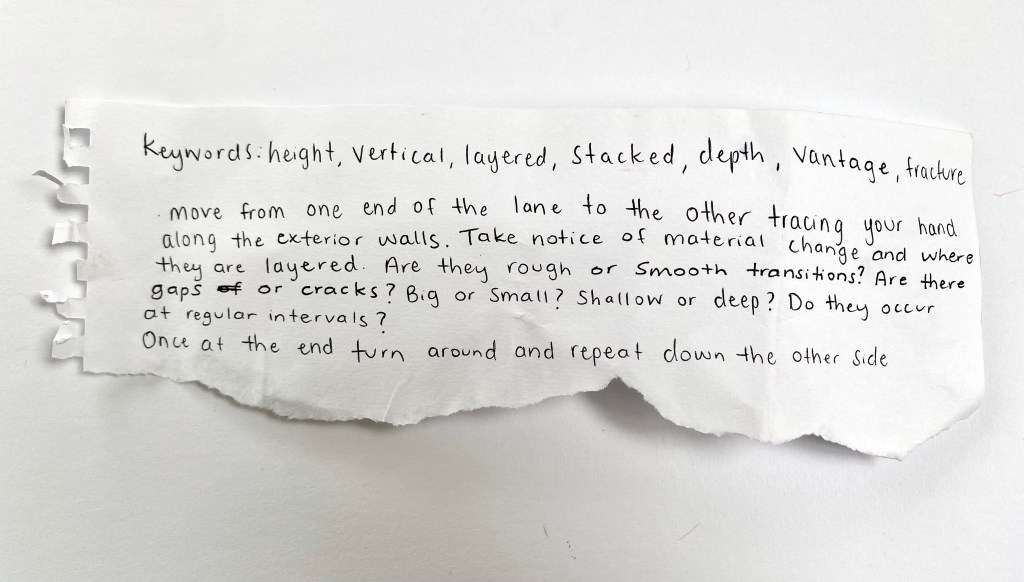 Keywords: height, vertical, layered, stacked, depth, vantage, fracture
. move from one end of the lane to the other tracing your hand
along the exterior walls. Take notice of material change and where
they are layered. Are they rough or smooth transitions? Are there
gaps of or cracks? Big or small? Shallow or deep? Do they occur
at regular intervals?
Once at the end turn around and repeat down the other side